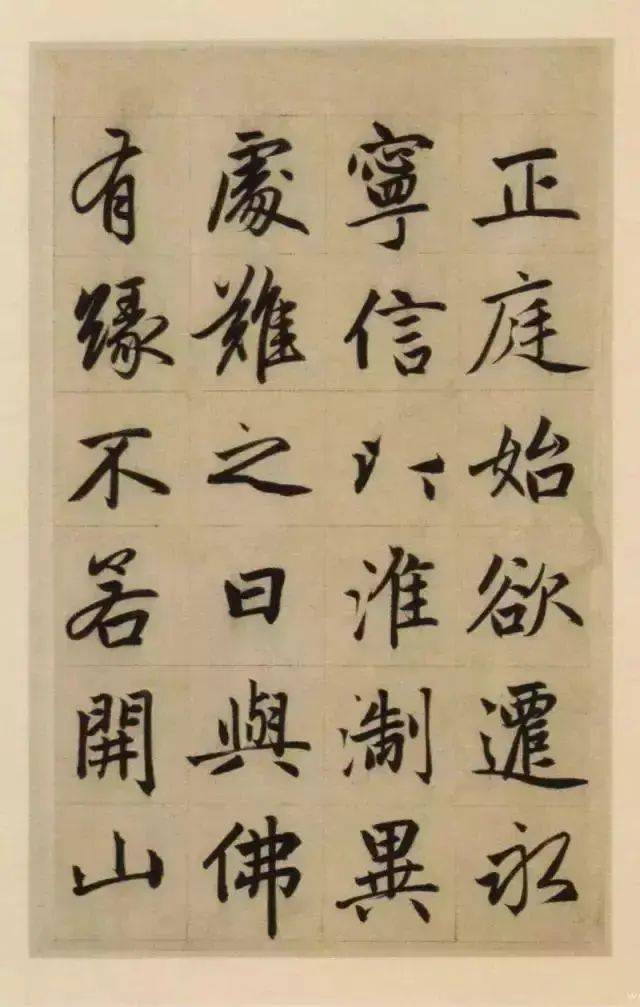 正庭始欲遷永
寧信淮淛異
處難之曰與佛
有緣不若開山